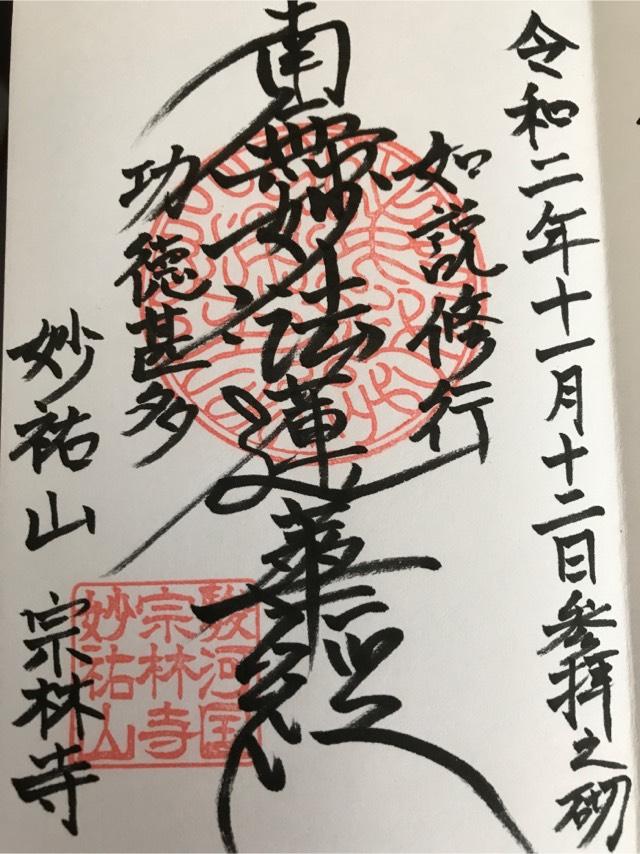 令和二年十一月十二日参拝之砌
如説修行
南無妙法蓮華経
功徳甚多
妙祐山 宗林寺
駿河国
宗林寺
妙祐山